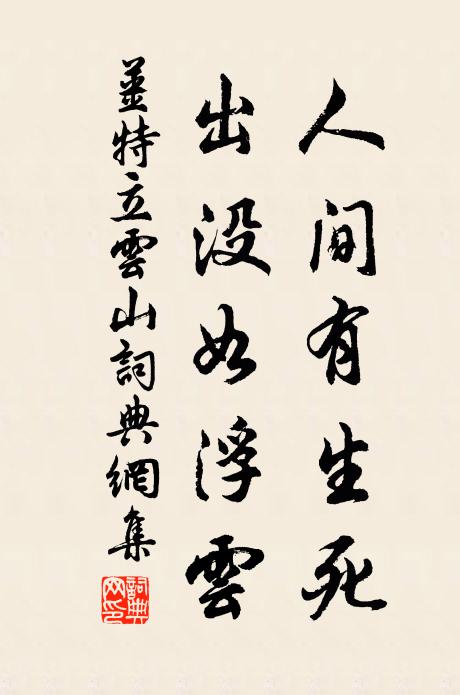 人間有生死
出没如浮雲
姜特立雲山詞典網集
詞典
网印